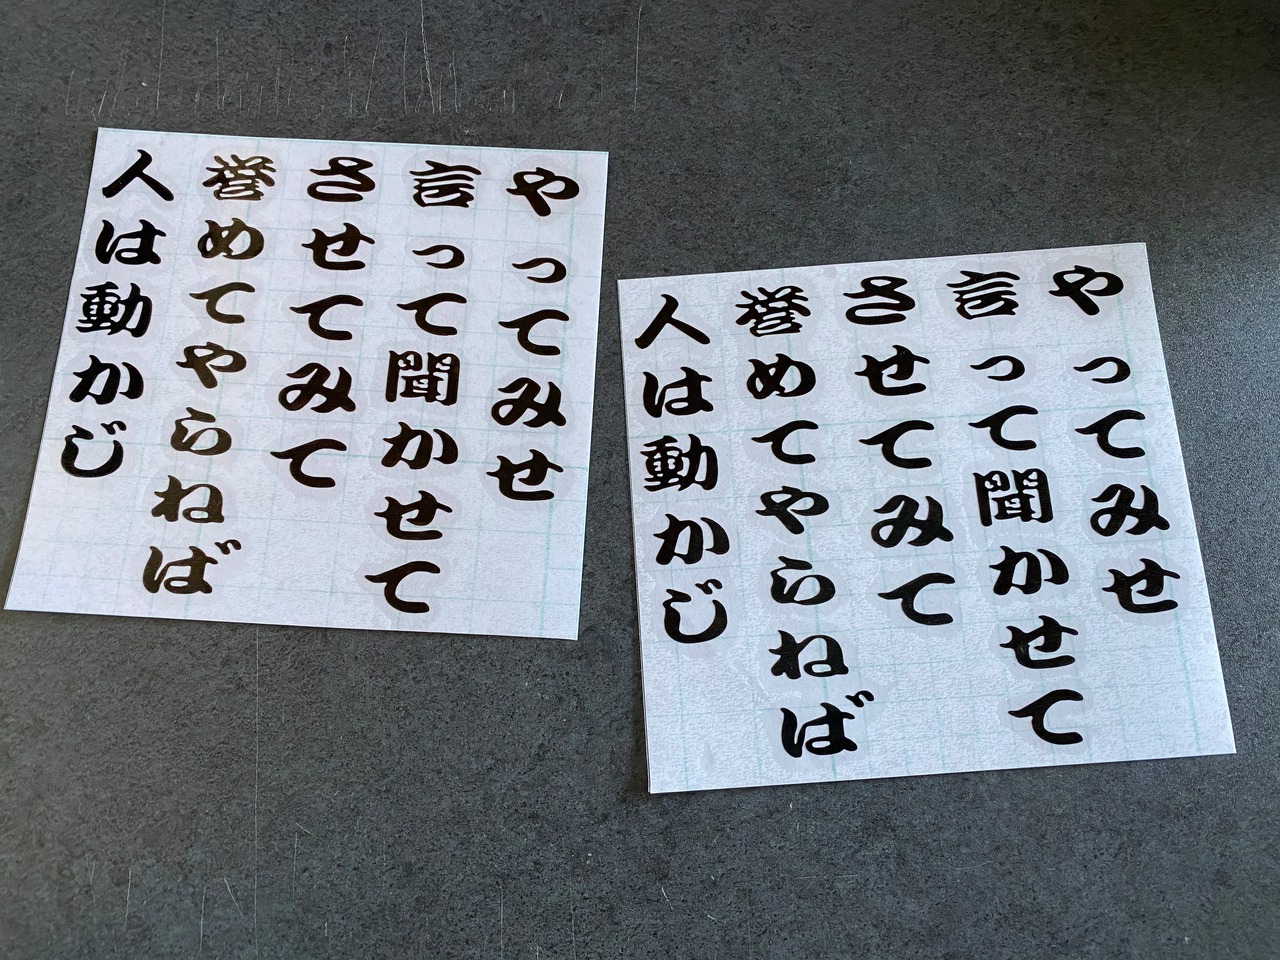 やってみせ
言って聞かせて
させてみて
誉めてやらねば
人は動かじ
やってみせ
言って聞かせて
させてみて
誉めてやらねば
人は動かじ